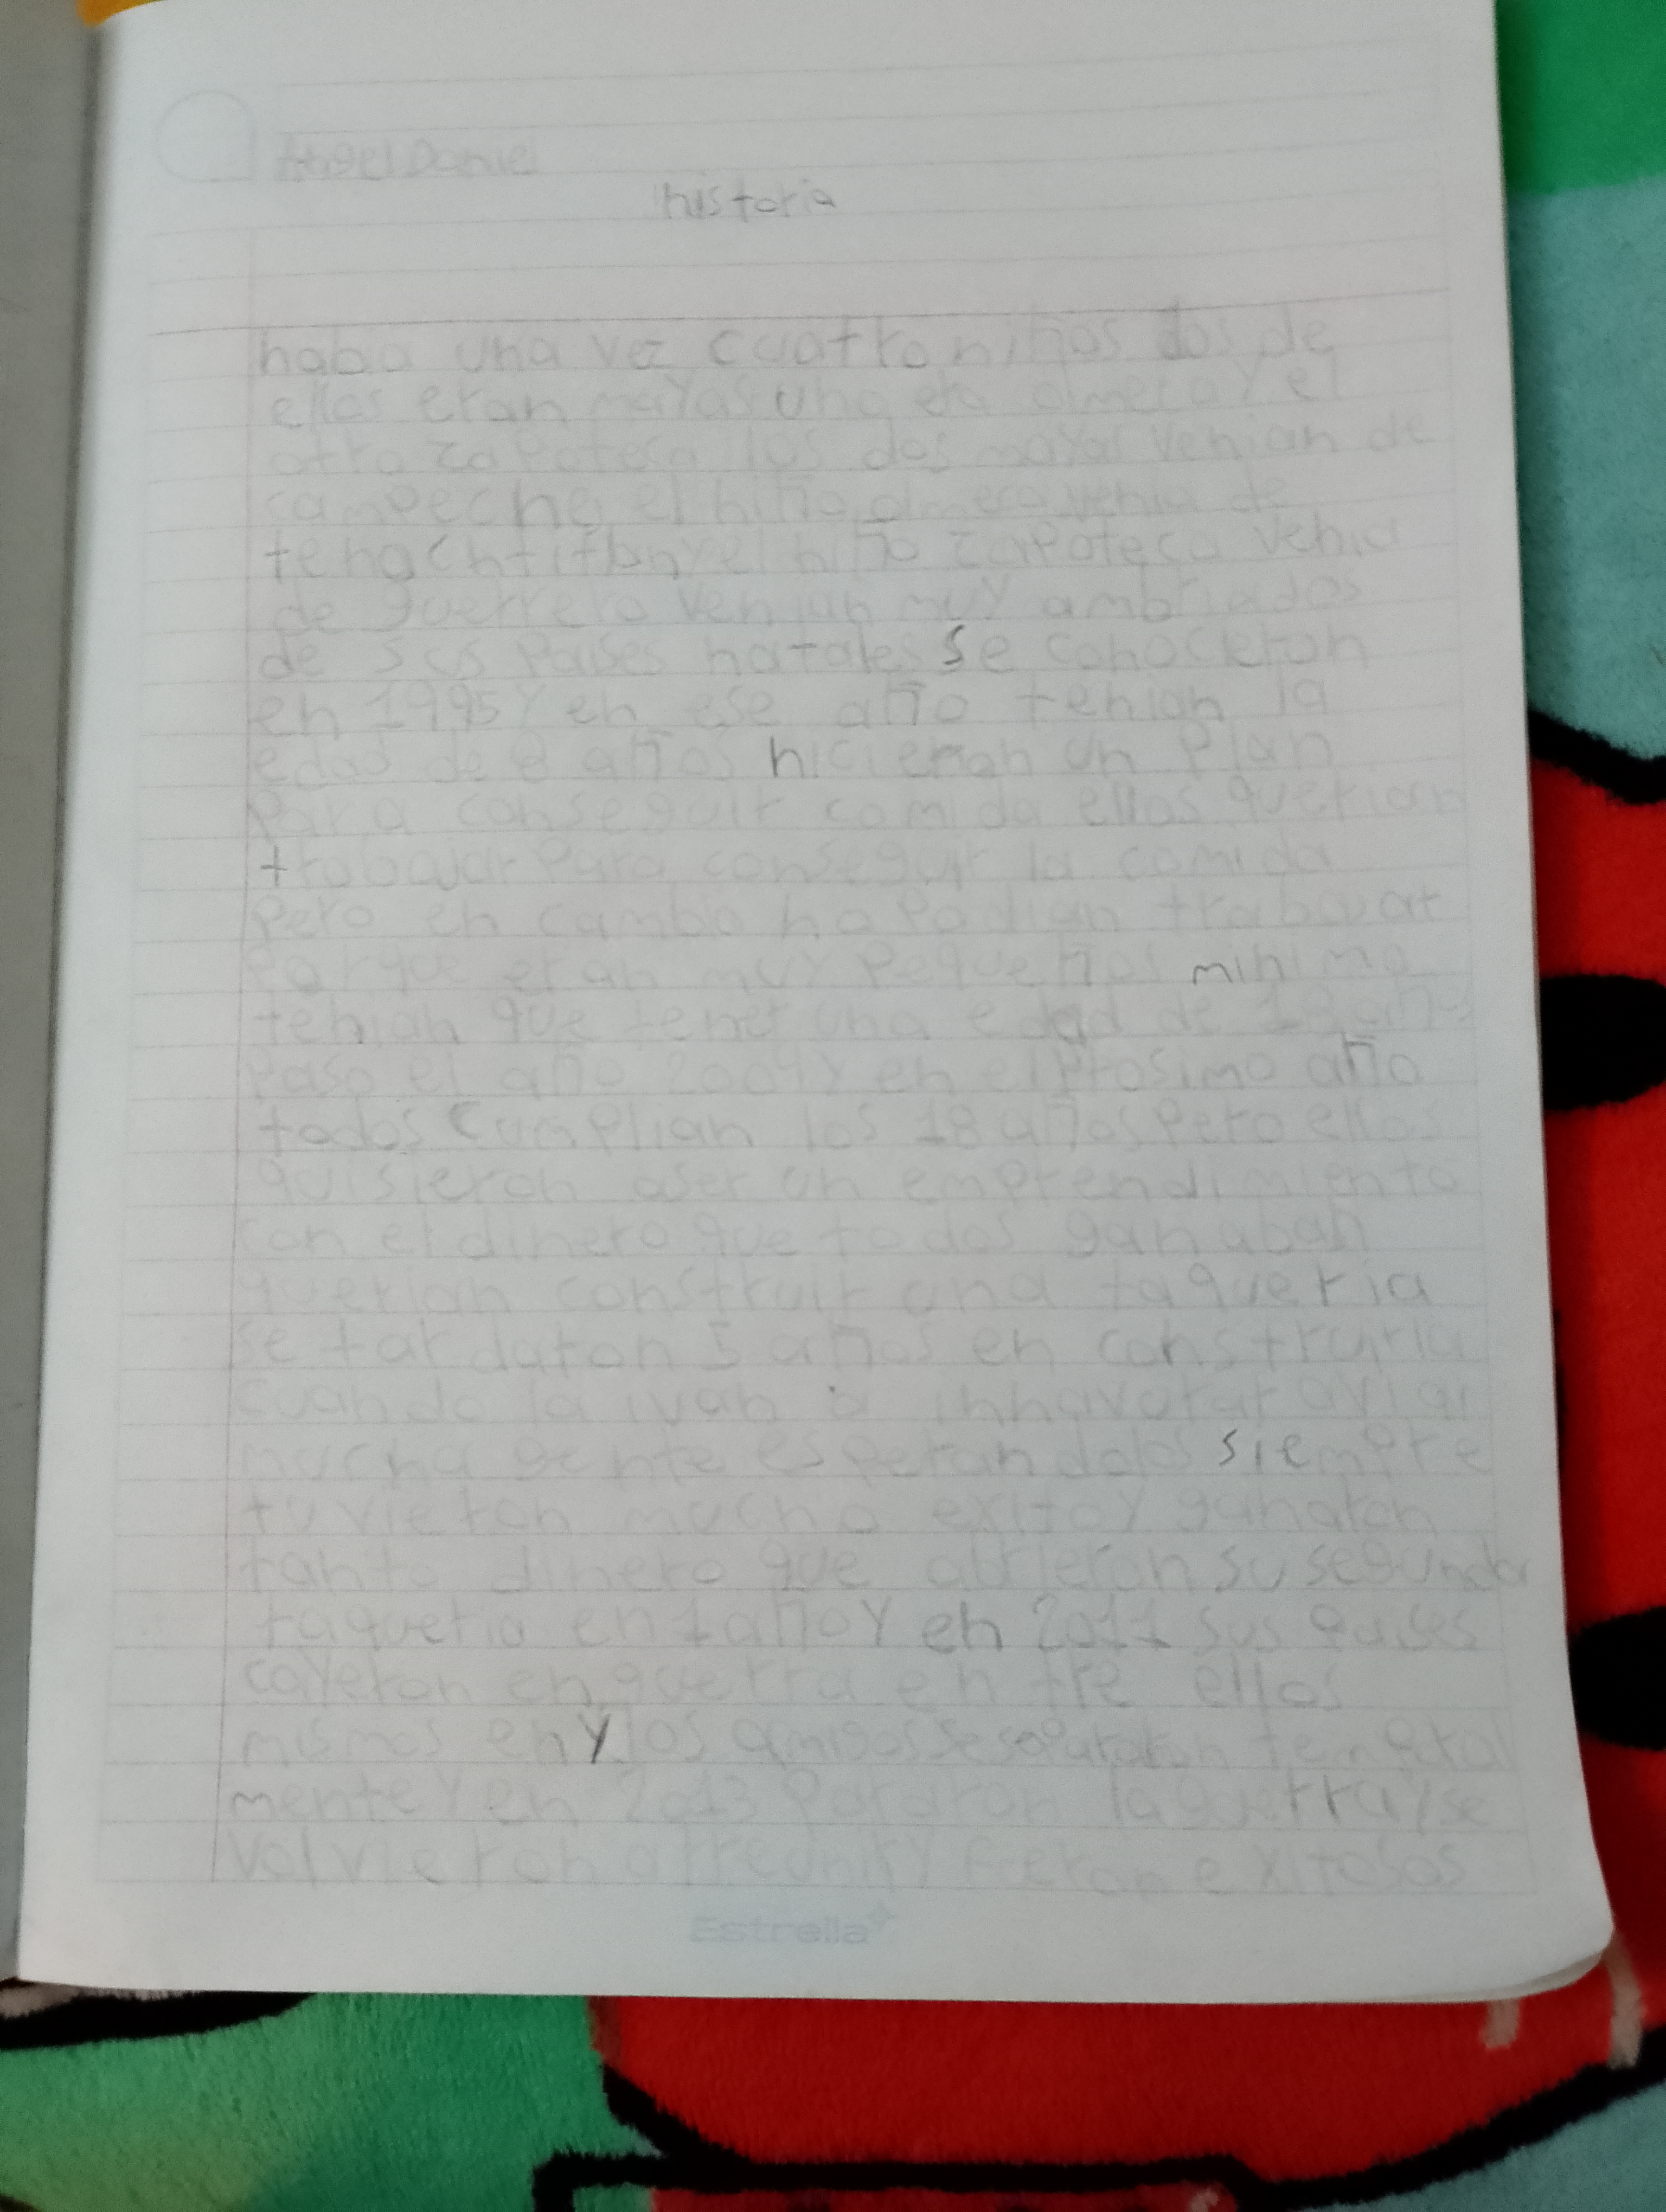 Angel Daniel
historia
haba una vez cuatro niños dos de
ellos eran mayas uno era olmeca y el
otro zapoteca los dos mayas venian de
campeche el niño olmeca venia de
tenochtitlan y el niño zapoteca venia
de guerrero venian muy ambriados
de sus paises natales se conocieron
en 1995 y en ese año tenian la
edad de 8 años hicieron un plan
para conseguir comida ellos querian
trabajar para conseguir la comida
pero en cambio no podian trabajar
porque eran muy pequeños minimo
tenian que tener una edad de 18 años
paso el año 2004 y en el prosimo año
todos cumplian los 18 años pero ellos
quisieron aser un emprendimiento
con el dinero que todos ganaban
querian construir una taqueria
se tardaron 5 años en construirla
cuando la ivan a innavurar avia
mucha gente esperandolos siempre
tuvieron mucho exito y ganaron
tanto dinero que abrieron su segunda
taqueria en 1 año y en 2011 sus paises
cayeron en guerra entre ellos
mismos en y los amigos se separaron temporal
mente y en 2013 pararon la guerra y se
volvieron a rreunir y fueron exitosos
Estrella